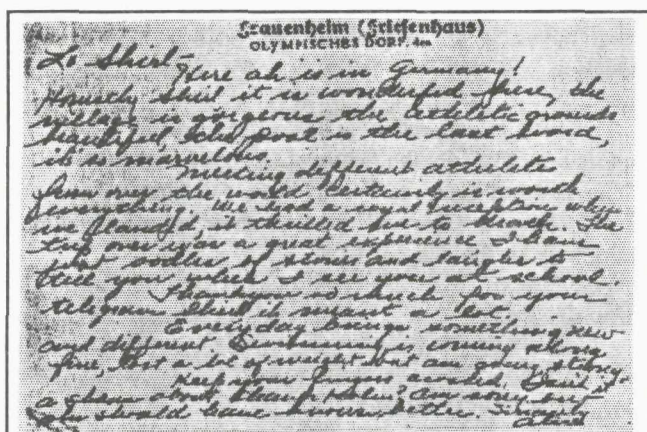 Frauenheim (Friesenhaus)
OLYMPISCHES DORF.
To Shirl—
Here ah is in Germany!
Honestly Shirl it is wonderful here, the
village is gorgeous the athletic grounds
beautiful, the pool is the last word,
it's marvelous.
Meeting different athletes
from over the world certainly is worth
everything. We had a royal reception when
we landed, it thrilled me to death. The
trip over was a great experience I have
of stories and laughs to
tell you when I see you at school.
Thank you so much for your
telegram Shirl it meant a lot.
Everyday brings something new
and different Swimming is coming along
fine, lost a lot of weight but am going strong
Keep your fingers crossed. Isn't it
a shame about Eleanor Holm? Am sorry but
she should have known better. Sincerely